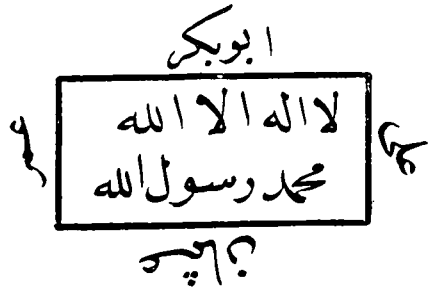 ابوبكر
لا اله الا الله
محمد رسول الله
عمر
عثمان
على